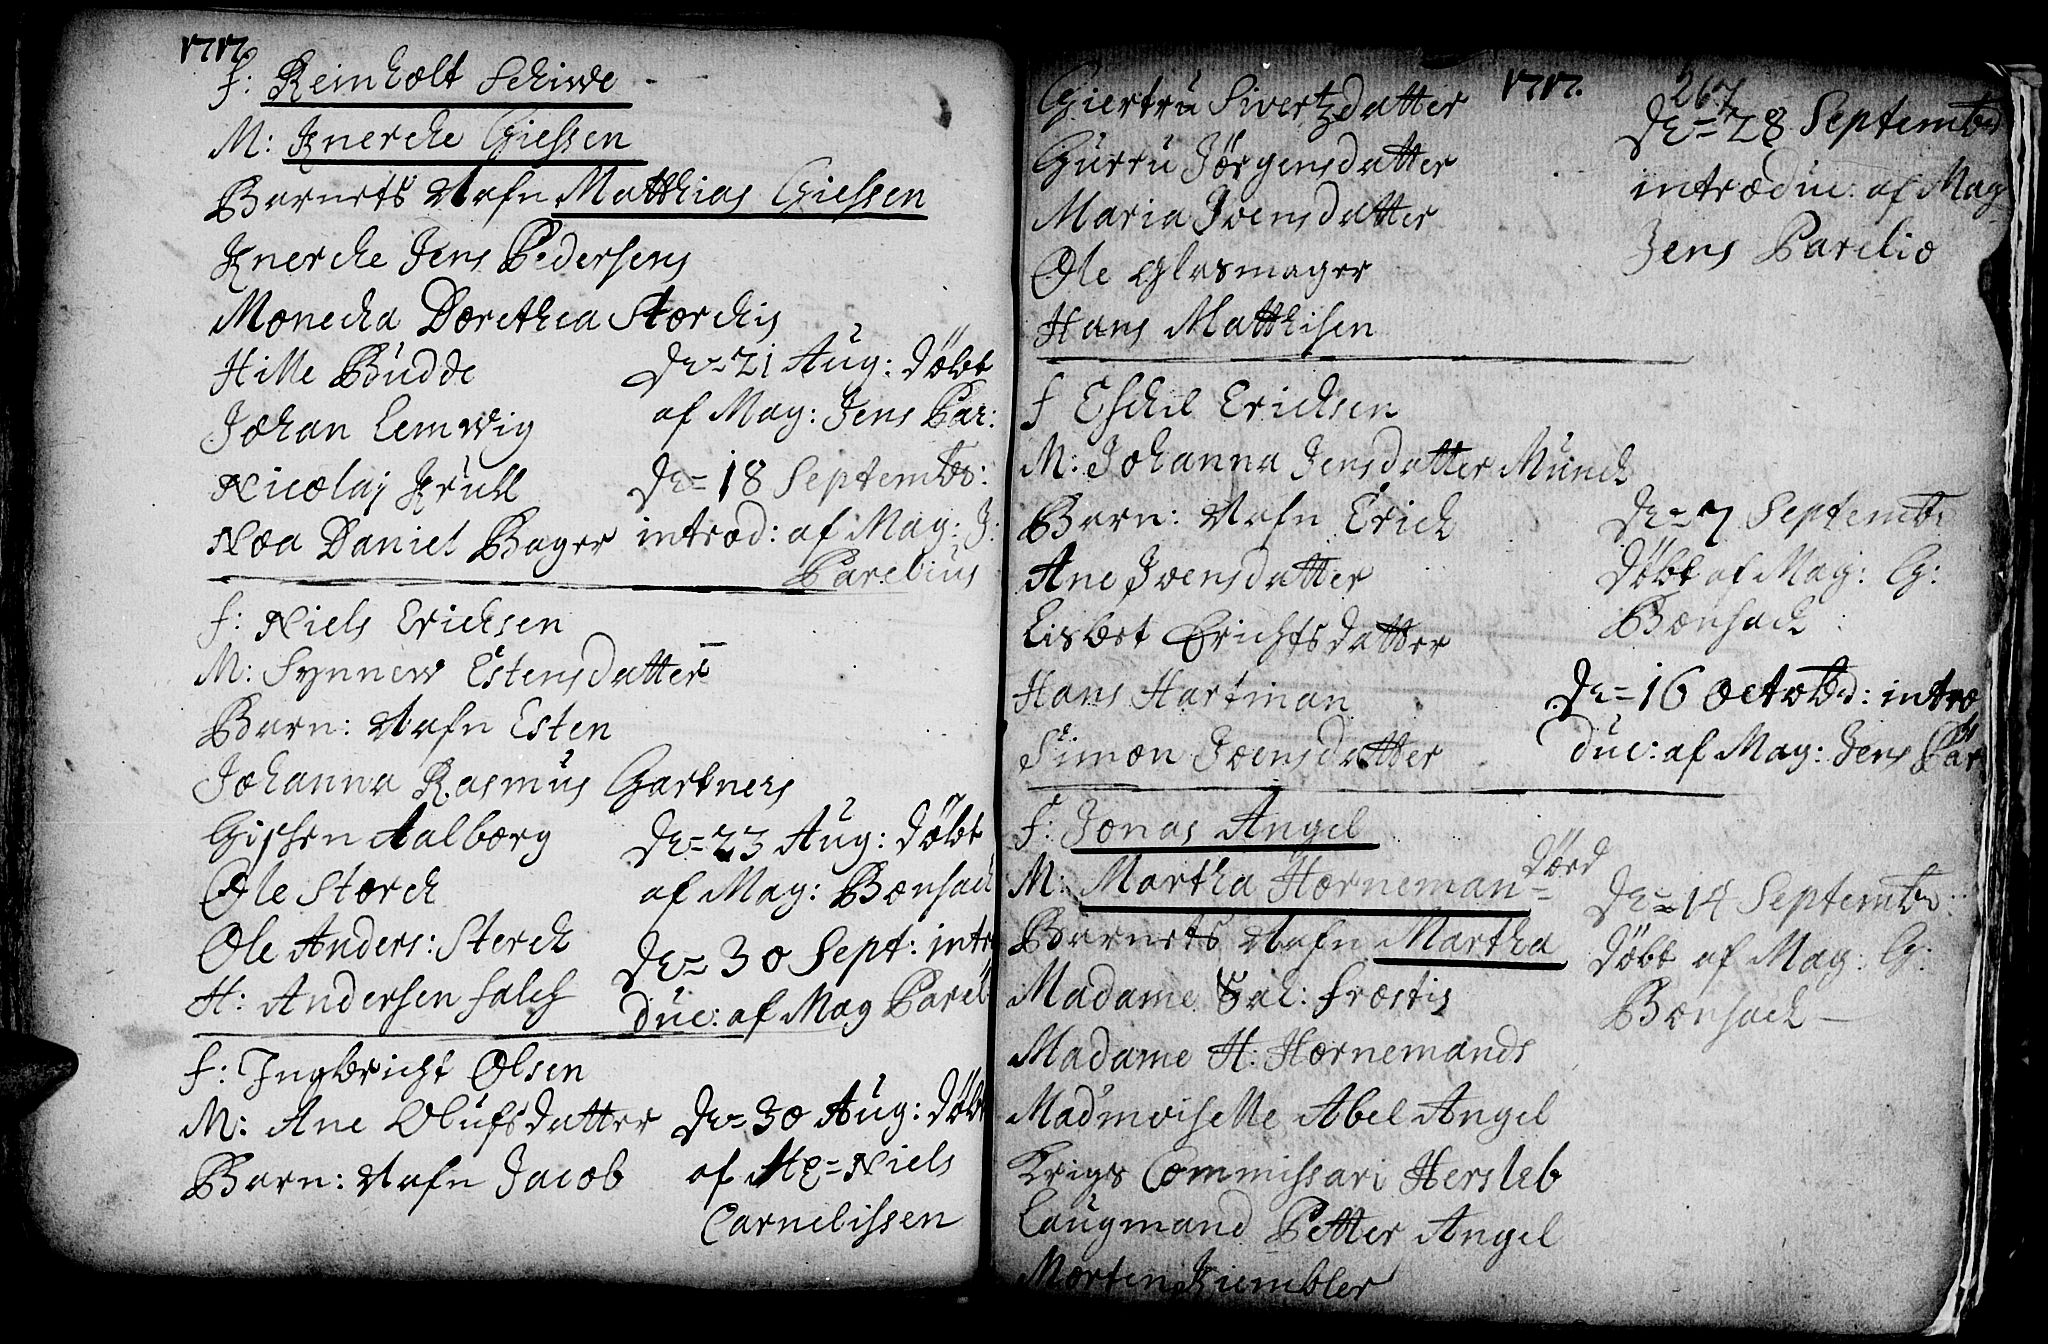 1717.
f: Reinholt Schive
M: Anercke Giessen
Barnets Nafn Matthias Giessen
Anercke Jens Pedersens
Monecka Dorethea Storckis
Hille Büdde
Johan Lemwig
Nicolaj Krüll
Noa Daniel Bager
De= 21 Aug: döbt
af Mag: Jens Par:
De= 18 Septembr:
introd: af Mag: J:
Parelius
f: Niels Ericksen
M: Synnew Estensdatter
Barn: Nafn Esten
Johanna Rasmus Gartners
Gissen Aalborg
Ole Storck
Ole Anders: Sterck
H: Andersen falch
De= 23 Aug: döbt
af Mag: Bonsach
De= 30 Sept: intro
duc: af Mag Parel
f: Ingbricht Olsen
M: Ane Olüfsdatter
Barn: Nafn Jacob
De= 30 Aug: döbt
af Mr= Niels
Cornelissen
1717.
267
Giertru Sivertzdatter
Gurru Jörgensdatter
Maria Joensdatter
Ole Glasmager
Hans Matthisen
De= 28 Septembr
introduc: af Mag
Jens Parelio
f Eschil Ericksen
M: Johanna Jensdatter Münck
Barn: Nafn Erick
Ane Joensdatter
Lisbet Erichtsdatter
Hans Hartman
Simon Joensdatter
De= 7 Septembr
döbt af Mag: G:
Bonsach:
De= 16 Octobr: intro
duc: af Mag: Jens Par
f: Jonas Angel
M: Martha Horneman= död
Barnets Nafn Martha
Madame Sal: frostis
Madame H: Hornemands
Mad'moiselle Abel Angel
Krigs Commissari Hersleb
Laugmand Petter Angel
Morten Kiembler
De= 14 Septembr:
döbt af Mag: G:
Bonsach